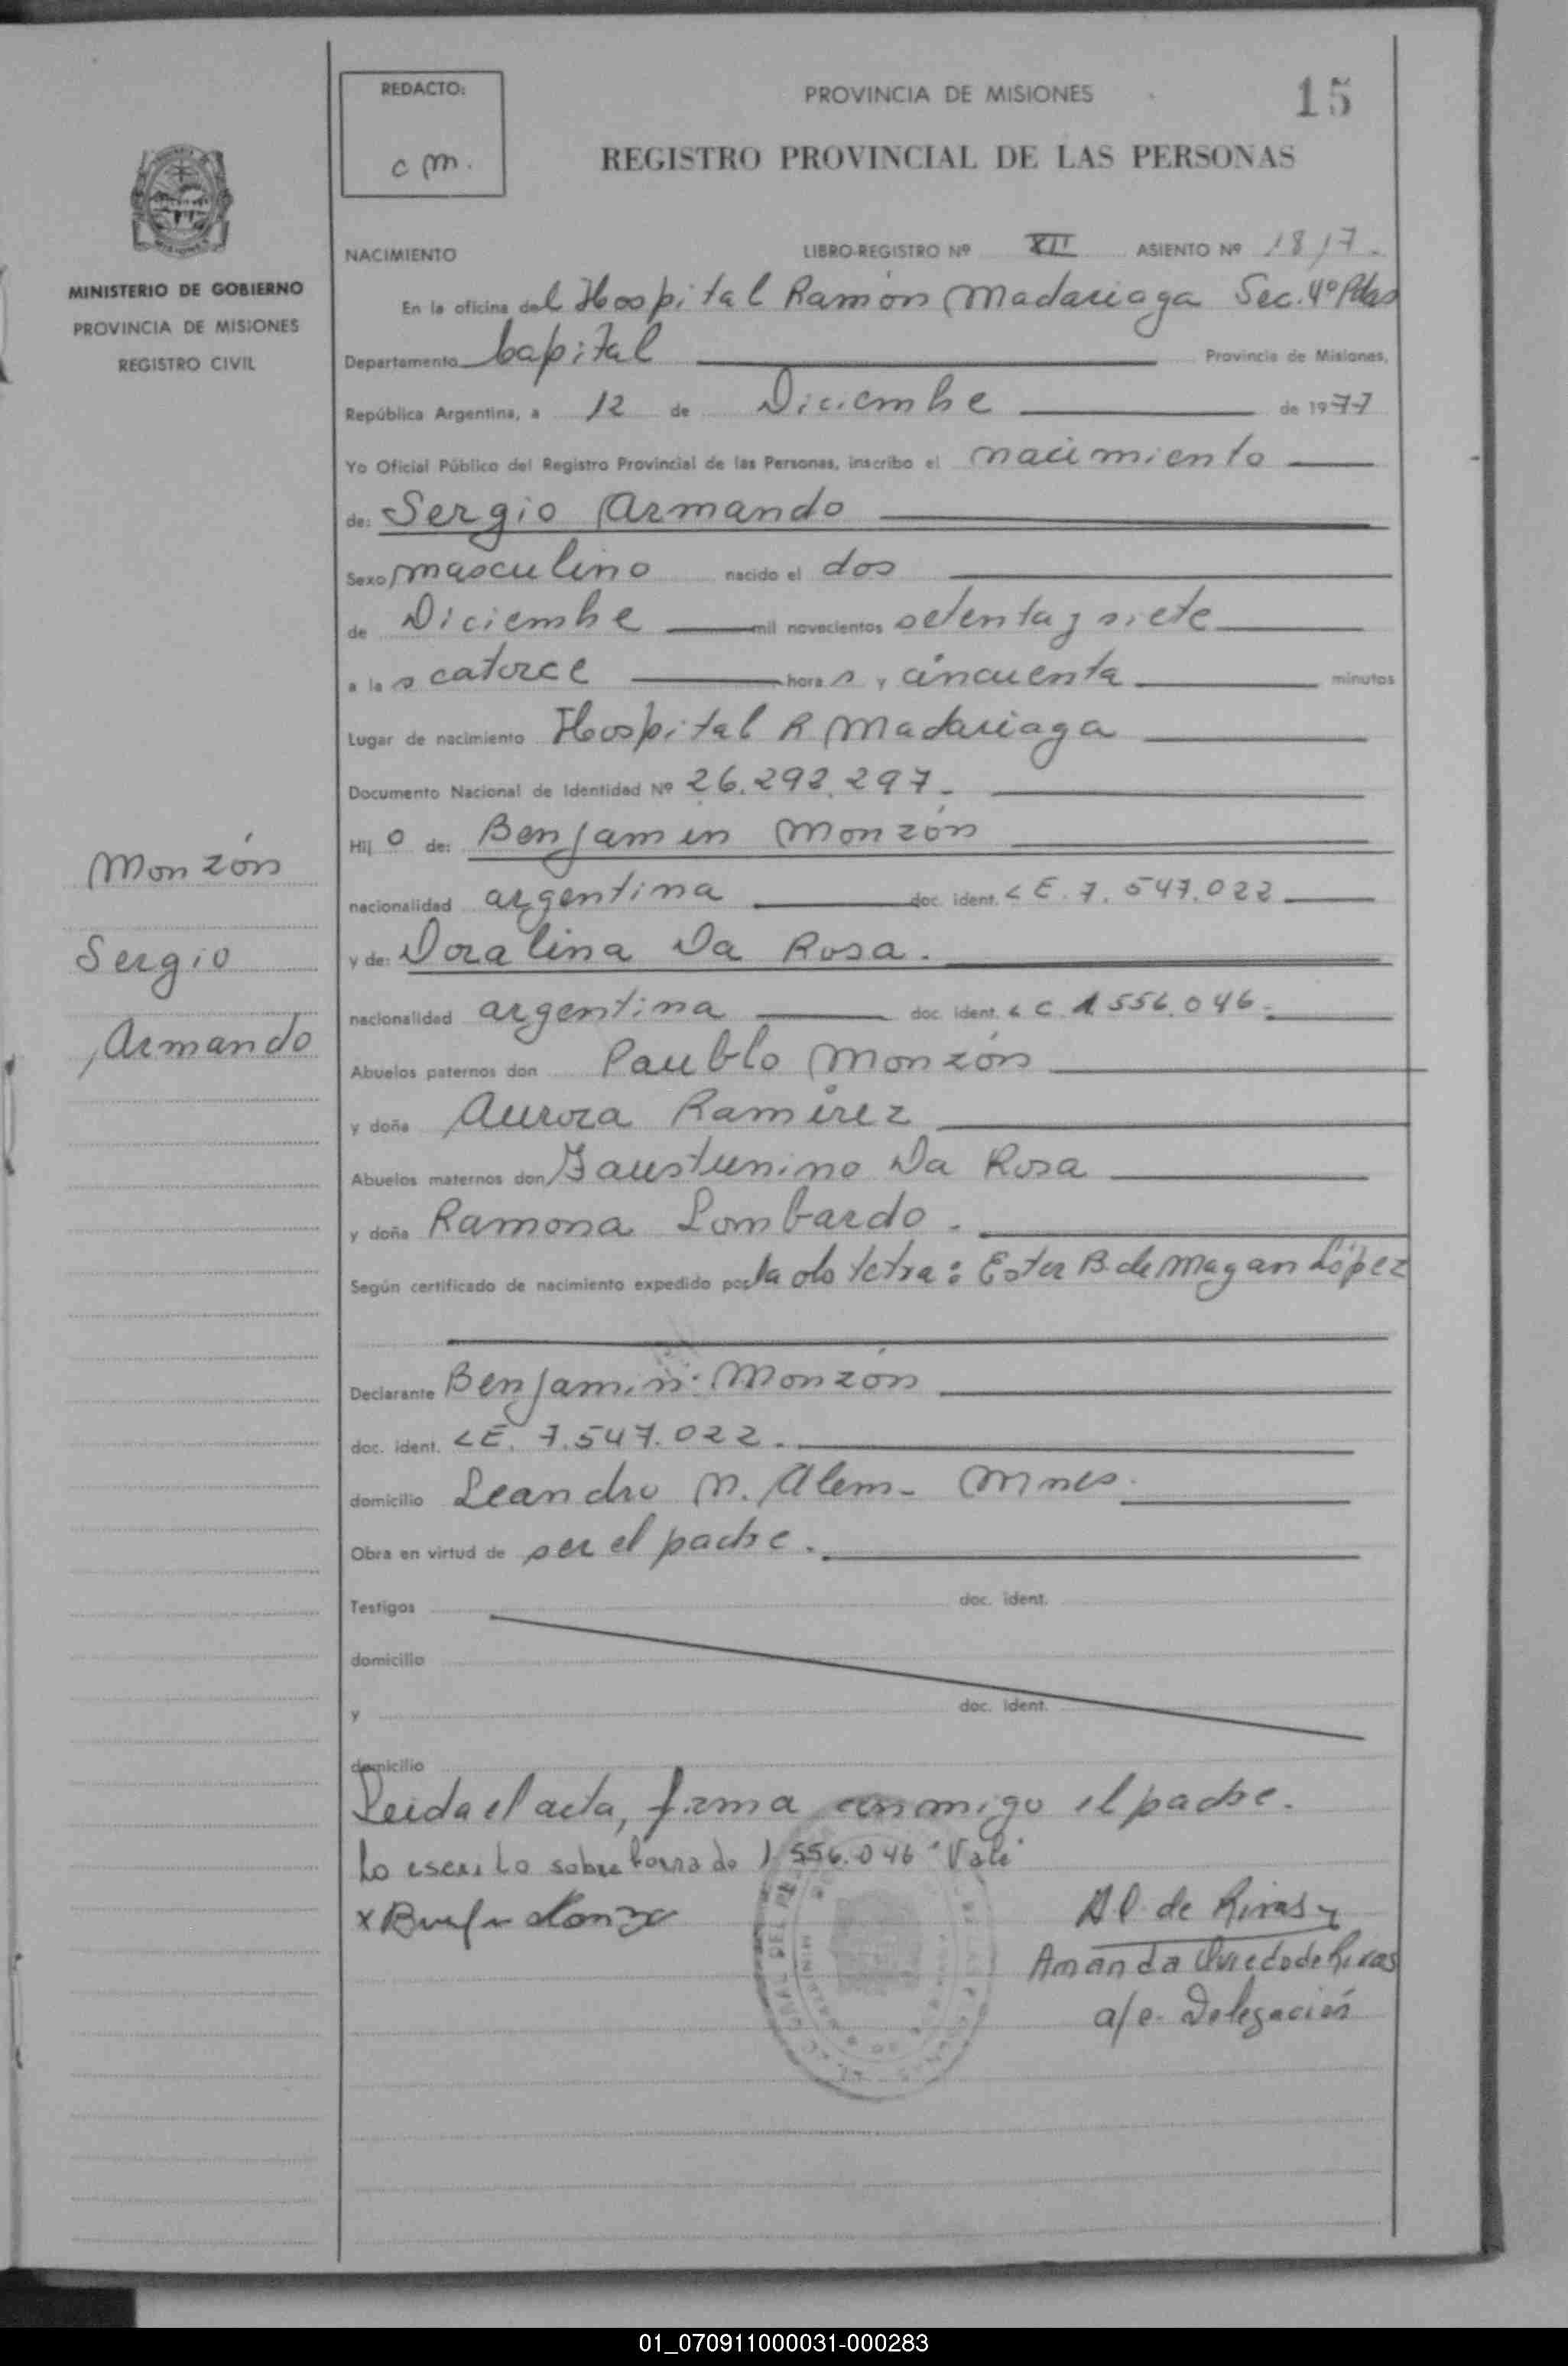 REDACTO:
c m.
PROVINCIA DE MISIONES
15
REGISTRO PROVINCIAL DE LAS PERSONAS
MINISTERIO DE GOBIERNO
PROVINCIA DE MISIONES
REGISTRO CIVIL
NACIMIENTO LIBRO-REGISTRO Nº XII ASIENTO Nº 1817.
En la oficina del Hospital Ramón Madariaga Sec. 4º Pdas
Departamento Capital Provincia de Misiones,
República Argentina, a 12 de Diciembre de 1977
Yo Oficial Público del Registro Provincial de las Personas, inscribo el nacimiento
de: Sergio Armando
Sexo masculino nacido el dos
de Diciembre mil novecientos setenta y siete
a las catorce horas y cincuenta minutos
Lugar de nacimiento Hospital R Madariaga
Documento Nacional de Identidad Nº 26.292.297.
Hijo de: Benjamin Monzón
nacionalidad argentina doc. ident. L E. 7.547.022
y de: Doralina Da Rosa.
nacionalidad argentina doc. ident. L C. 1.556.046.
Abuelos paternos don Paublo Monzón
y doña Aurora Ramírez
Abuelos maternos don Faustunino Da Rosa
y doña Ramona Lombardo.
Según certificado de nacimiento expedido por la obstetra: Ester B. de Magan López
Declarante Benjamin Monzón
doc. ident. LE. 7.547.022.
domicilio Leandro N. Alem - Mnes.
Obra en virtud de ser el padre.
Testigos doc. ident.
domicilio
y doc. ident.
domicilio
Leida el acta, firma conmigo el padre.
Lo escrito sobre borrado 1.556.046 "Vale"
x
A O de Rivas
Amanda Oviedo de Rivas
a/c. Delegación
Monzón
Sergio
Armando
01_070911000031-000283